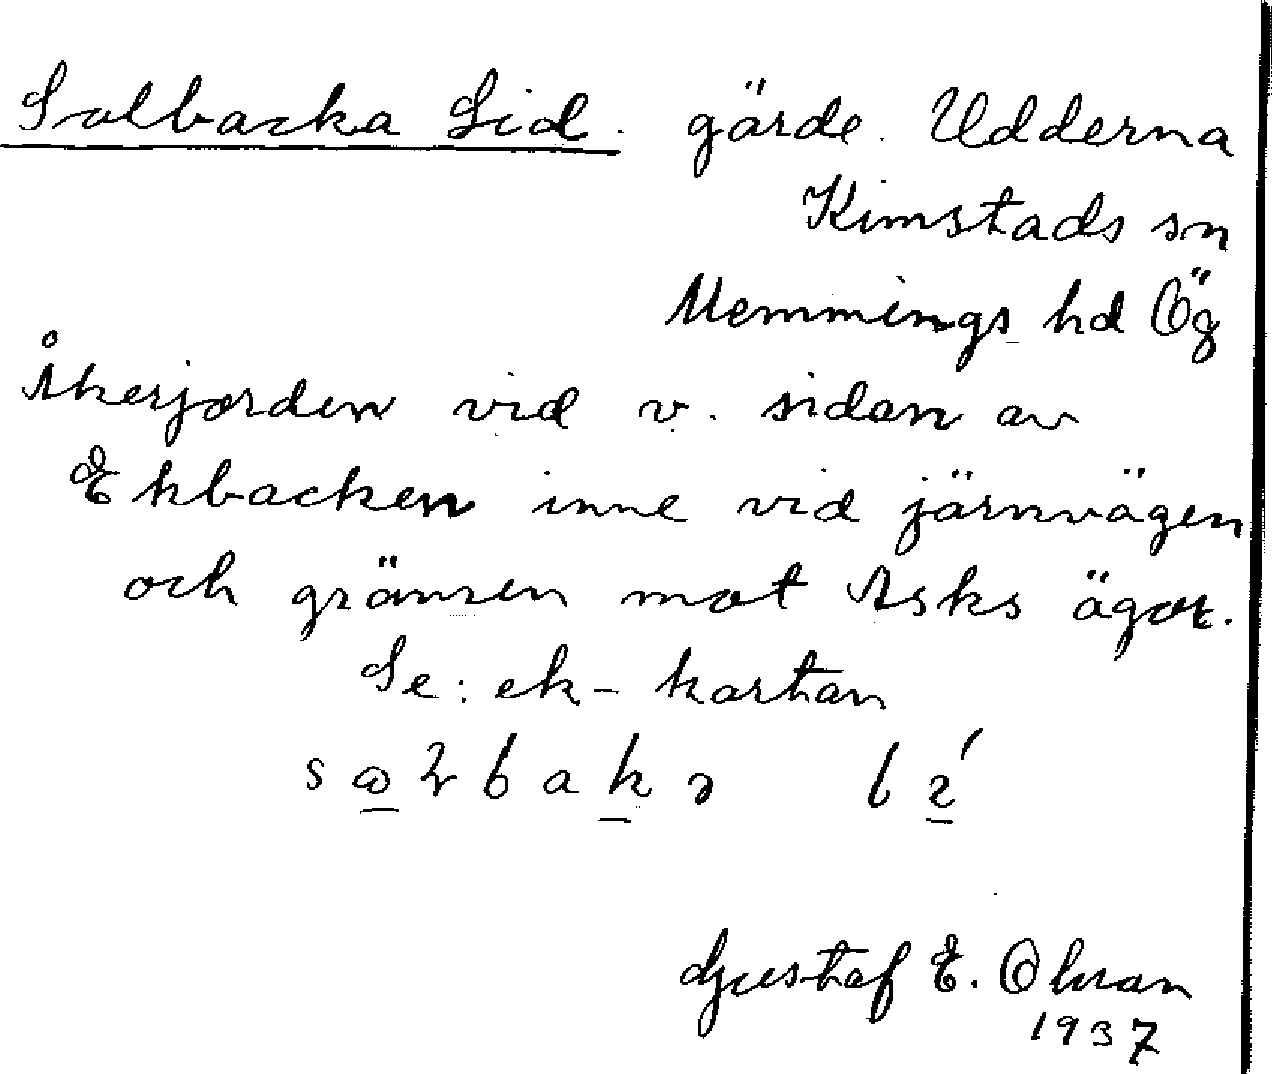 Solbacka Lid. gärde. Udderna
Kimstads sn
Memmings hd Ög
Åkerjorden vid v. sidan av
Ekbacken inne vid järnvägen
och gränsen mot Asks ägor.
Se: ek-kartan
Gustaf E. Ohran
1937